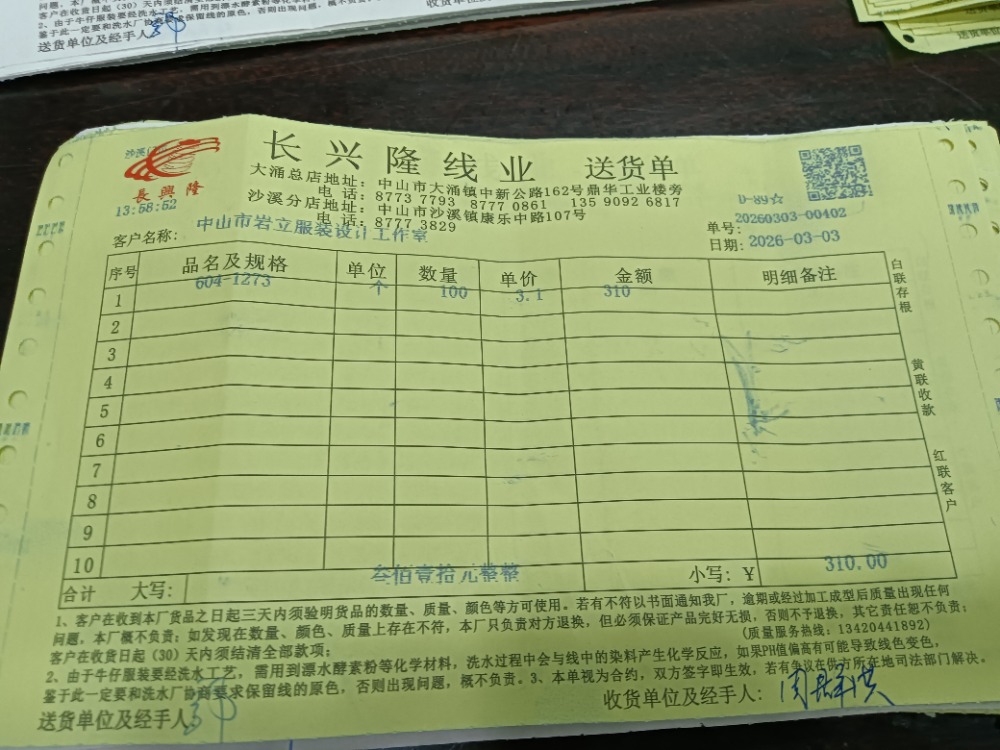 问题，本厂概不负责
客户在收货日起（30）天内须结清全部
2、由于牛仔服装要经洗水工艺，需用到漂水酵素粉等化学
鉴于此一定要和洗水厂协商要求保留线的原色，否则出现问题，概不
送货单位及经手人
收货单位
长兴隆线业 送货单
沙溪
長興隆
13:58:52
大涌总店地址：中山市大涌镇中新公路162号鼎华工业楼旁
电话：8773 7793 8777 0861 135 9092 6817
沙溪分店地址：中山市沙溪镇康乐中路107号
电话：8777 3829
D-89☆
单号：20260303-00402
日期：2026-03-03
客户名称：中山市岩立服装设计工作室
序号 品名及规格 单位 数量 单价 金额 明细备注
1 604-1273 个 100 3.1 310
2
3
4
5
6
7
8
9
10
合计 大写：叁佰壹拾元整整 小写：￥ 310.00
白联存根
黄联收款
红联客户
1、客户在收到本厂货品之日起三天内须验明货品的数量、质量、颜色等方可使用。若有不符以书面通知我厂，逾期或经过加工成型后质量出现任何
问题，本厂概不负责；如发现在数量、颜色、质量上存在不符，本厂只负责对方退换，但必须保证产品完好无损，否则不予退换，其它责任恕不负责；
客户在收货日起（30）天内须结清全部款项； （质量服务热线：13420441892）
2、由于牛仔服装要经洗水工艺，需用到漂水酵素粉等化学材料，洗水过程中会与线中的染料产生化学反应，如果PH值偏高有可能导致线色变色，
鉴于此一定要和洗水厂协商要求保留线的原色，否则出现问题，概不负责。3、本单视为合约，双方签字即生效，若有争议在供方所在地司法部门解决。
送货单位及经手人 收货单位及经手人：